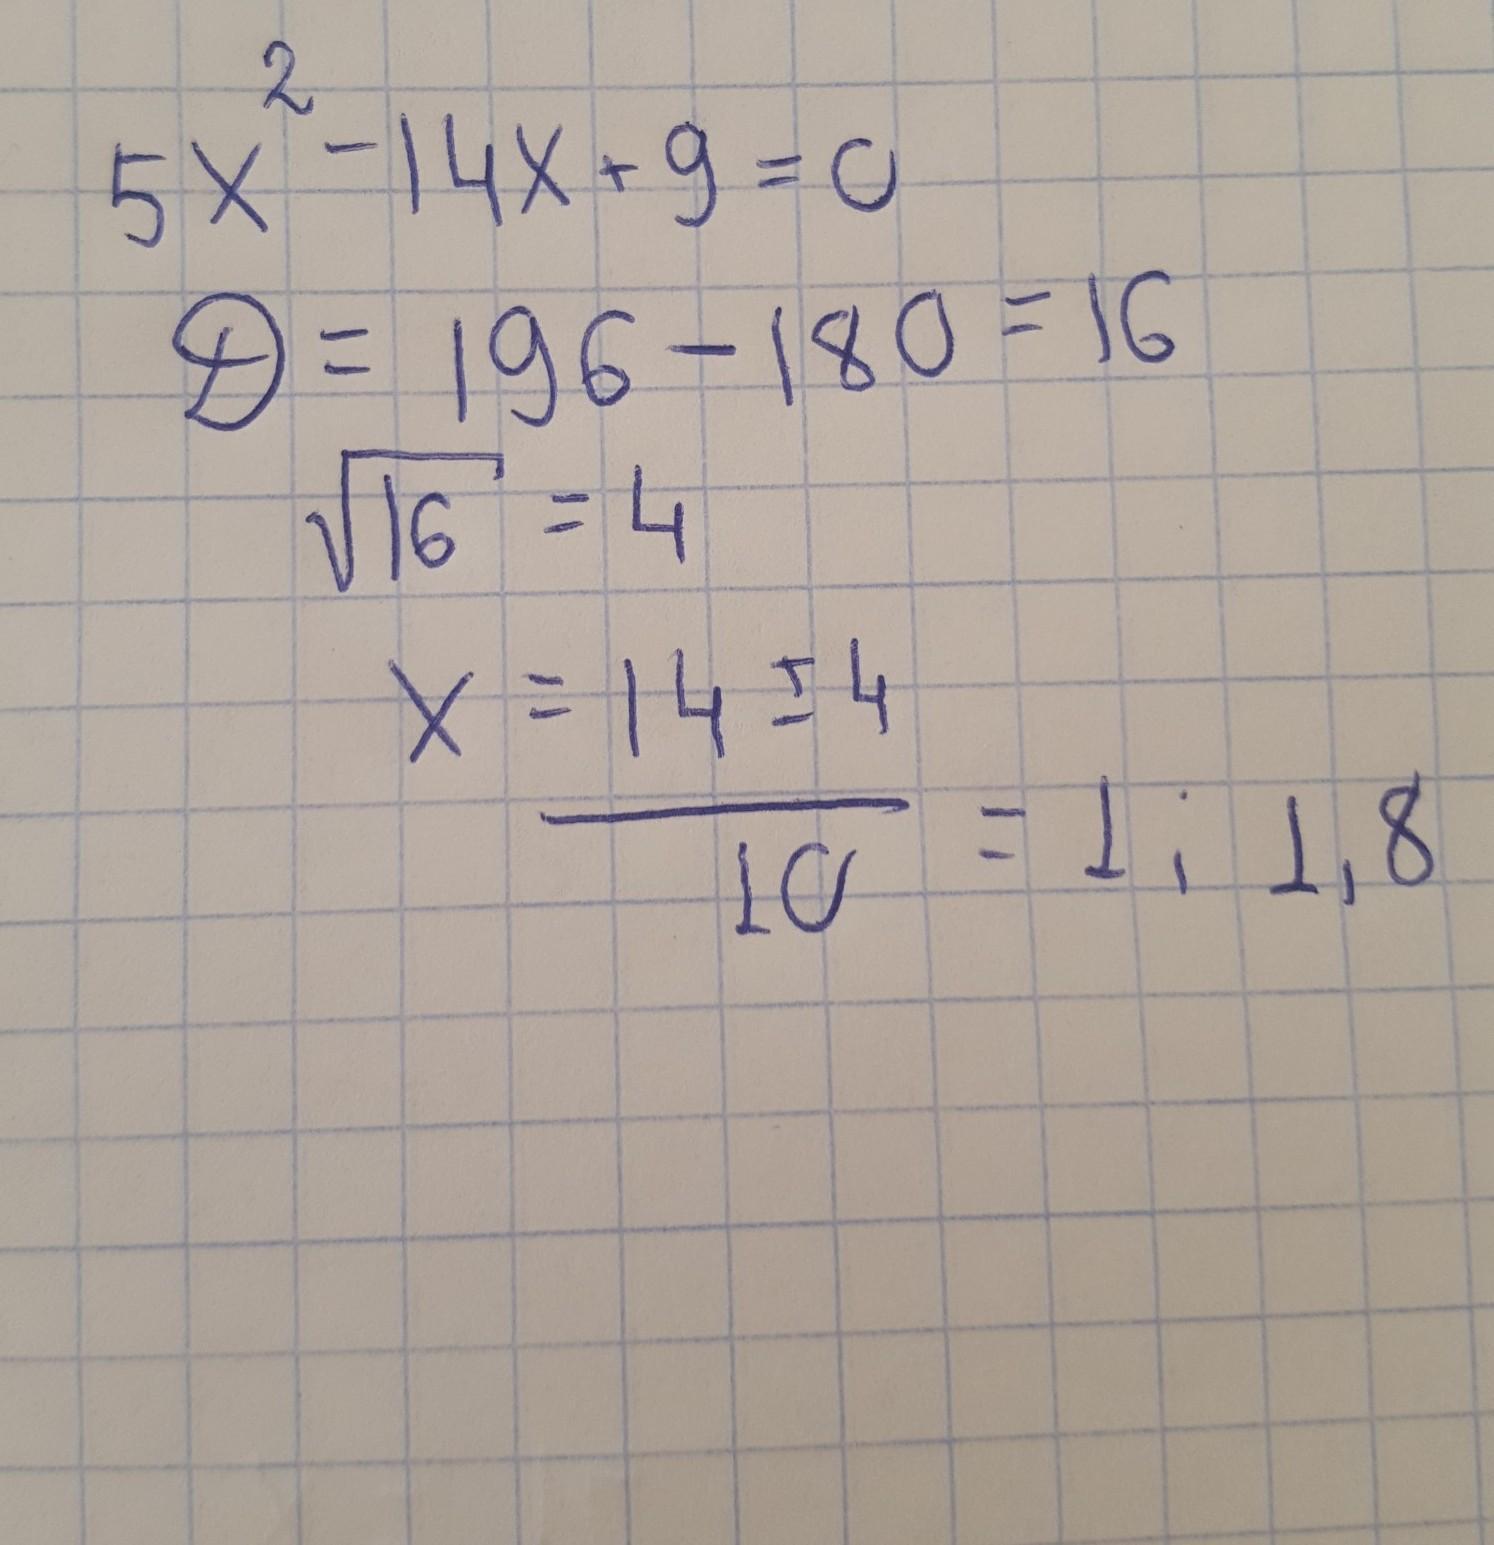 5x² - 14x + 9 = 0
D = 196 - 180 = 16
√16 = 4
x = 14 ± 4
10 = 1; 1,8